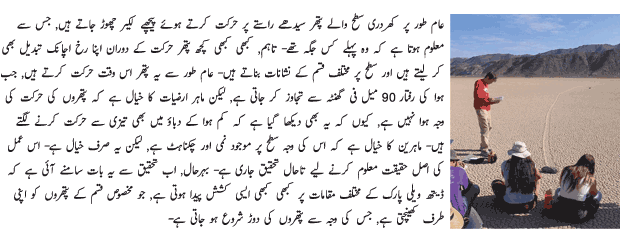 عام طور پر کھردری سطح والے پتھر سیدھے راستے پر حرکت کرتے ہوئے پیچھے لکیر چھوڑ جاتے ہیں, جس سے
معلوم ہوتا ہے کہ وہ پہلے کس جگہ تھے- تاہم, کبھی کبھی کچھ پتھر حرکت کے دوران اپنا رخ اچانک تبدیل بھی
کر لیتے ہیں اور سطح پر مختلف قسم کے نشانات بناتے ہیں- عام طور سے یہ پتھر اس وقت حرکت کرتے ہیں, جب
ہوا کی رفتار 90 میل فی گھنٹہ سے تجاوز کر جاتی ہے, لیکن ماہر ارضیات کا خیال ہے کہ پتھروں کی حرکت کی
وجہ ہوا نہیں ہے, کیوں کہ یہ بھی دیکھا گیا ہے کہ کم ہوا کے دباؤ میں بھی تیزی سے حرکت کرنے لگتے
ہیں- ماہرین کا خیال ہے کہ اس کی وجہ سطح پر موجود نمی اور چکناہٹ ہے, لیکن یہ صرف خیال ہے- اس عمل
کی اصل حقیقت معلوم کرنے لیے تاحال تحقیق جاری ہے- بہرحال, اب تحقیق سے یہ بات سامنے آئی ہے کہ
ڈیتھ ویلی پارک کے مختلف مقامات پر کبھی کبھی ایسی کشش پیدا ہوتی ہے, جو مخصوص قسم کے پتھروں کو اپنی
طرف کھینچتی ہے, جس کی وجہ سے پتھروں کی دوڑ شروع ہو جاتی ہے-